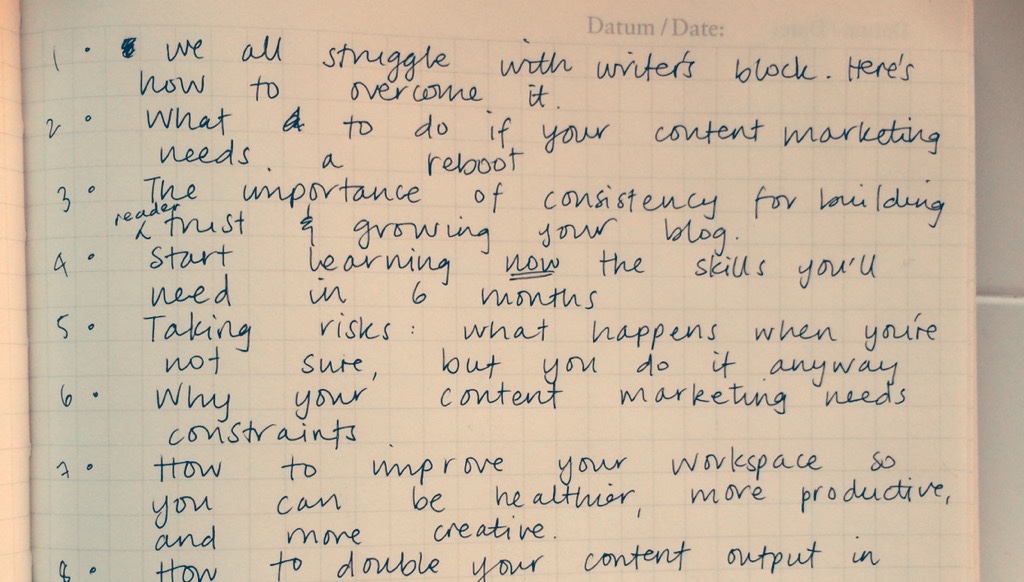 Datum / Date:
1. we all struggle with writer's block. Here's
how to overcome it.
2. What to do if your content marketing
needs a reboot
3. The importance of consistency for building
reader trust & growing your blog.
4. Start learning now the skills you'll
need in 6 months
5. Taking risks: what happens when you're
not sure, but you do it anyway
6. Why your content marketing needs
constraints.
7. How to improve your workspace so
you can be healthier, more productive,
and more creative.
8. How to double your content output in